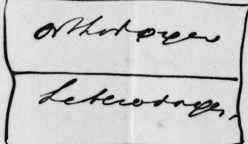 orthodoxes
heterodoxes.